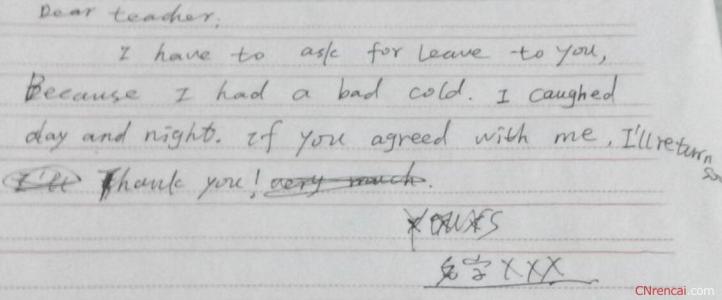 Dear teacher,
I have to ask for leave to you,
Because I had a bad cold. I caughed
day and night. If you agreed with me, I'll return
Thank you!
Yours
名字 XXX
CNrencai.com